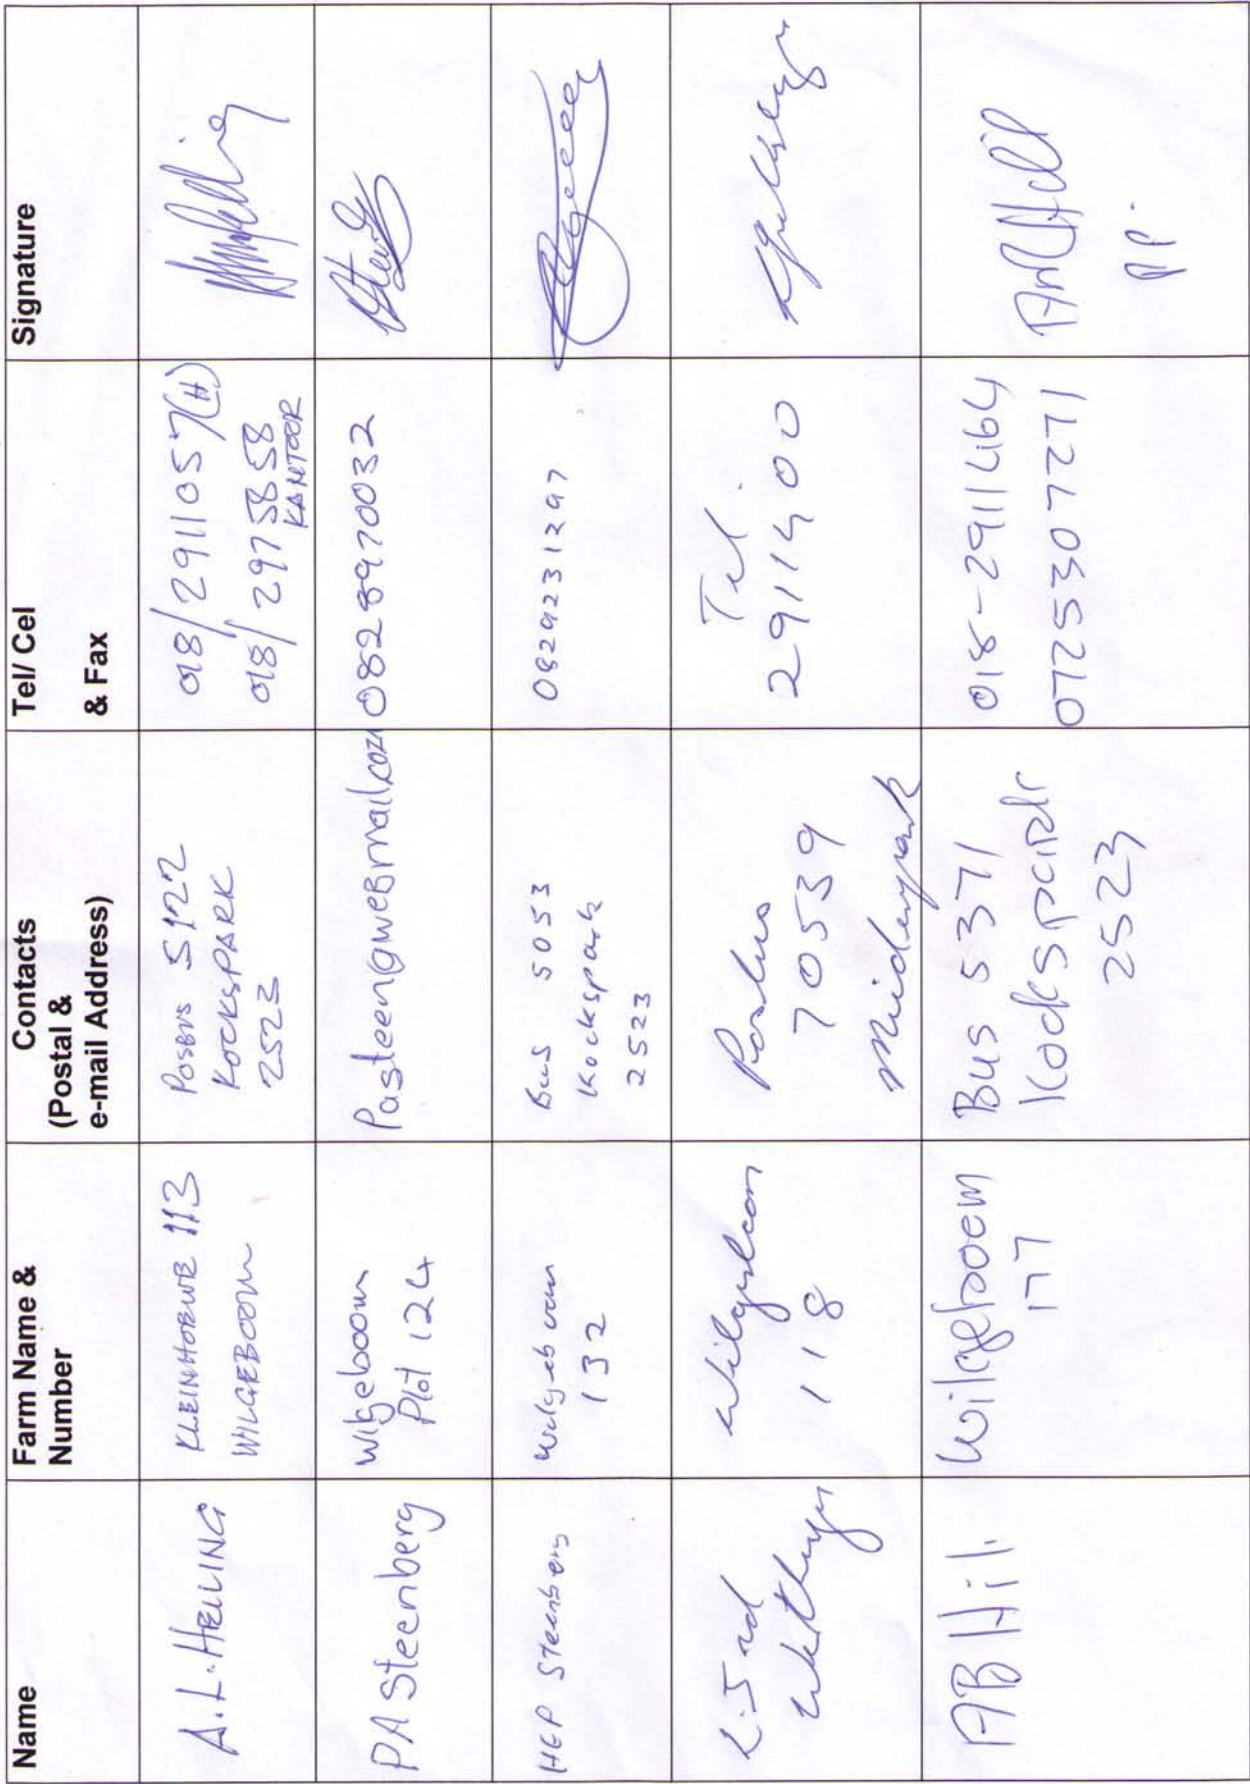 Name
Farm Name &
Number
Contacts
(Postal &
e-mail Address)
Tel/ Cel
& Fax
Signature
A.L. HELLING
KLEINHOEWE 113
WILGEBOOM
POSBUS 5122
KOCKSPARK
2523
018/2911057(H)
018/2975858
KANTOOR
PA Steenberg
Wilgeboom
Plot 124
Pasteen@webmail.coza
0828970032
HEP Steenberg
Wilgeboom
132
Bus 5053
Kockspark
2523
0829231297
Wilgeboom
118
Posbus
7 0539
Tel
2911400
AB Hill
Wilgeboom
177
Bus 5371
Kockspark
2523
018-2911464
0725307271
pp.